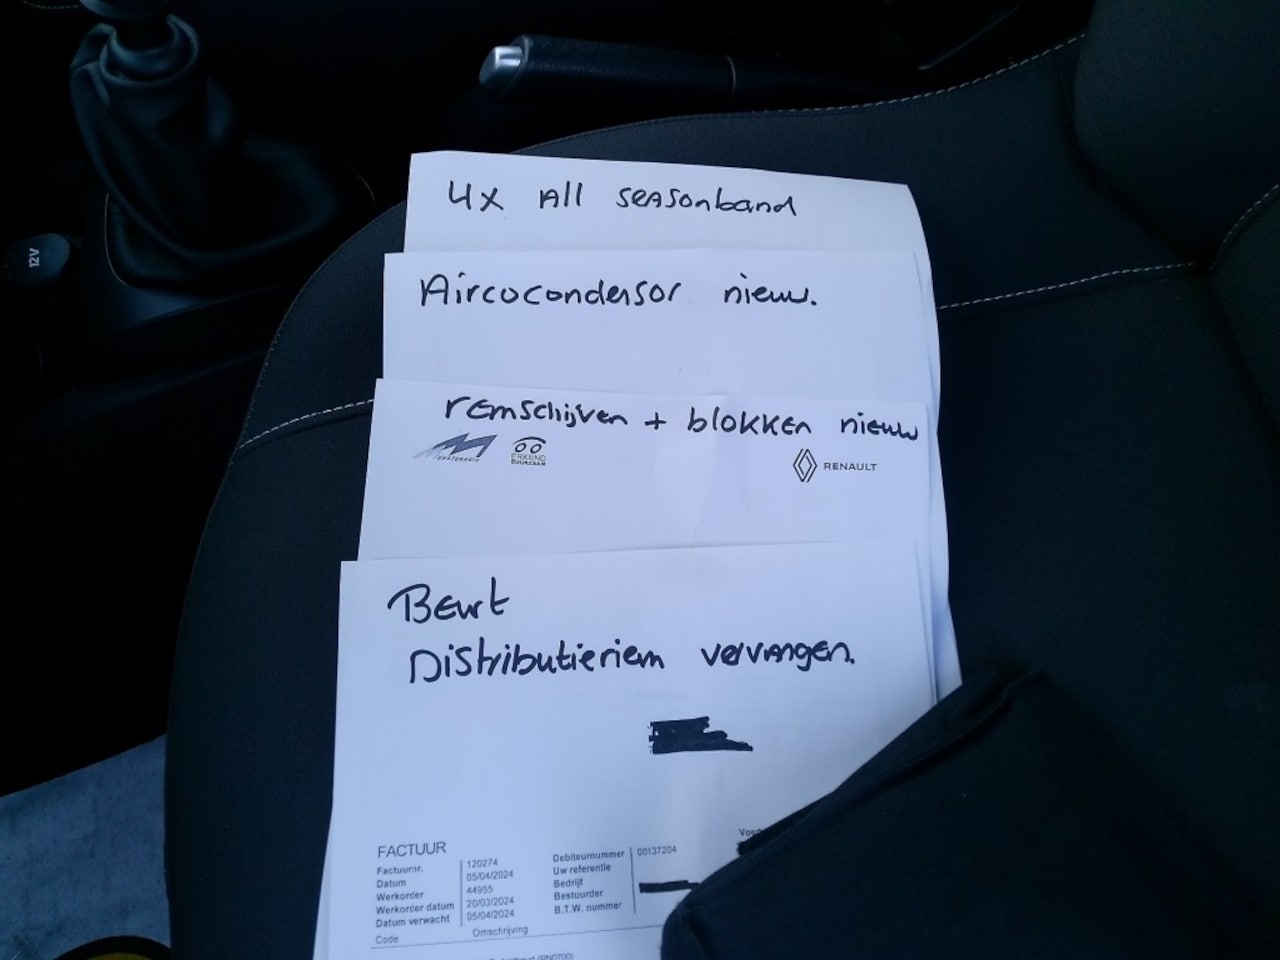 12V
4x All seasonband
Aircocondensor nieuw.
remschijven + blokken nieuw
ERKEND
DUURZAAM
RENAULT
Beurt
Distributieriem vervangen.
FACTUUR
Factuurnr. 120274
Datum 05/04/2024
Werkorder 44955
Werkorder datum 20/03/2024
Datum verwacht 05/04/2024
Debiteurnummer 00137204
Uw referentie
Bedrijf
Bestuurder
B.T.W. nummer
Code Omschrijving